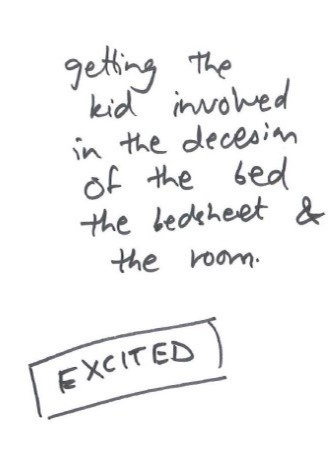 getting the
kid involved
in the decesion
of the bed
the bedsheet &
the room.
EXCITED